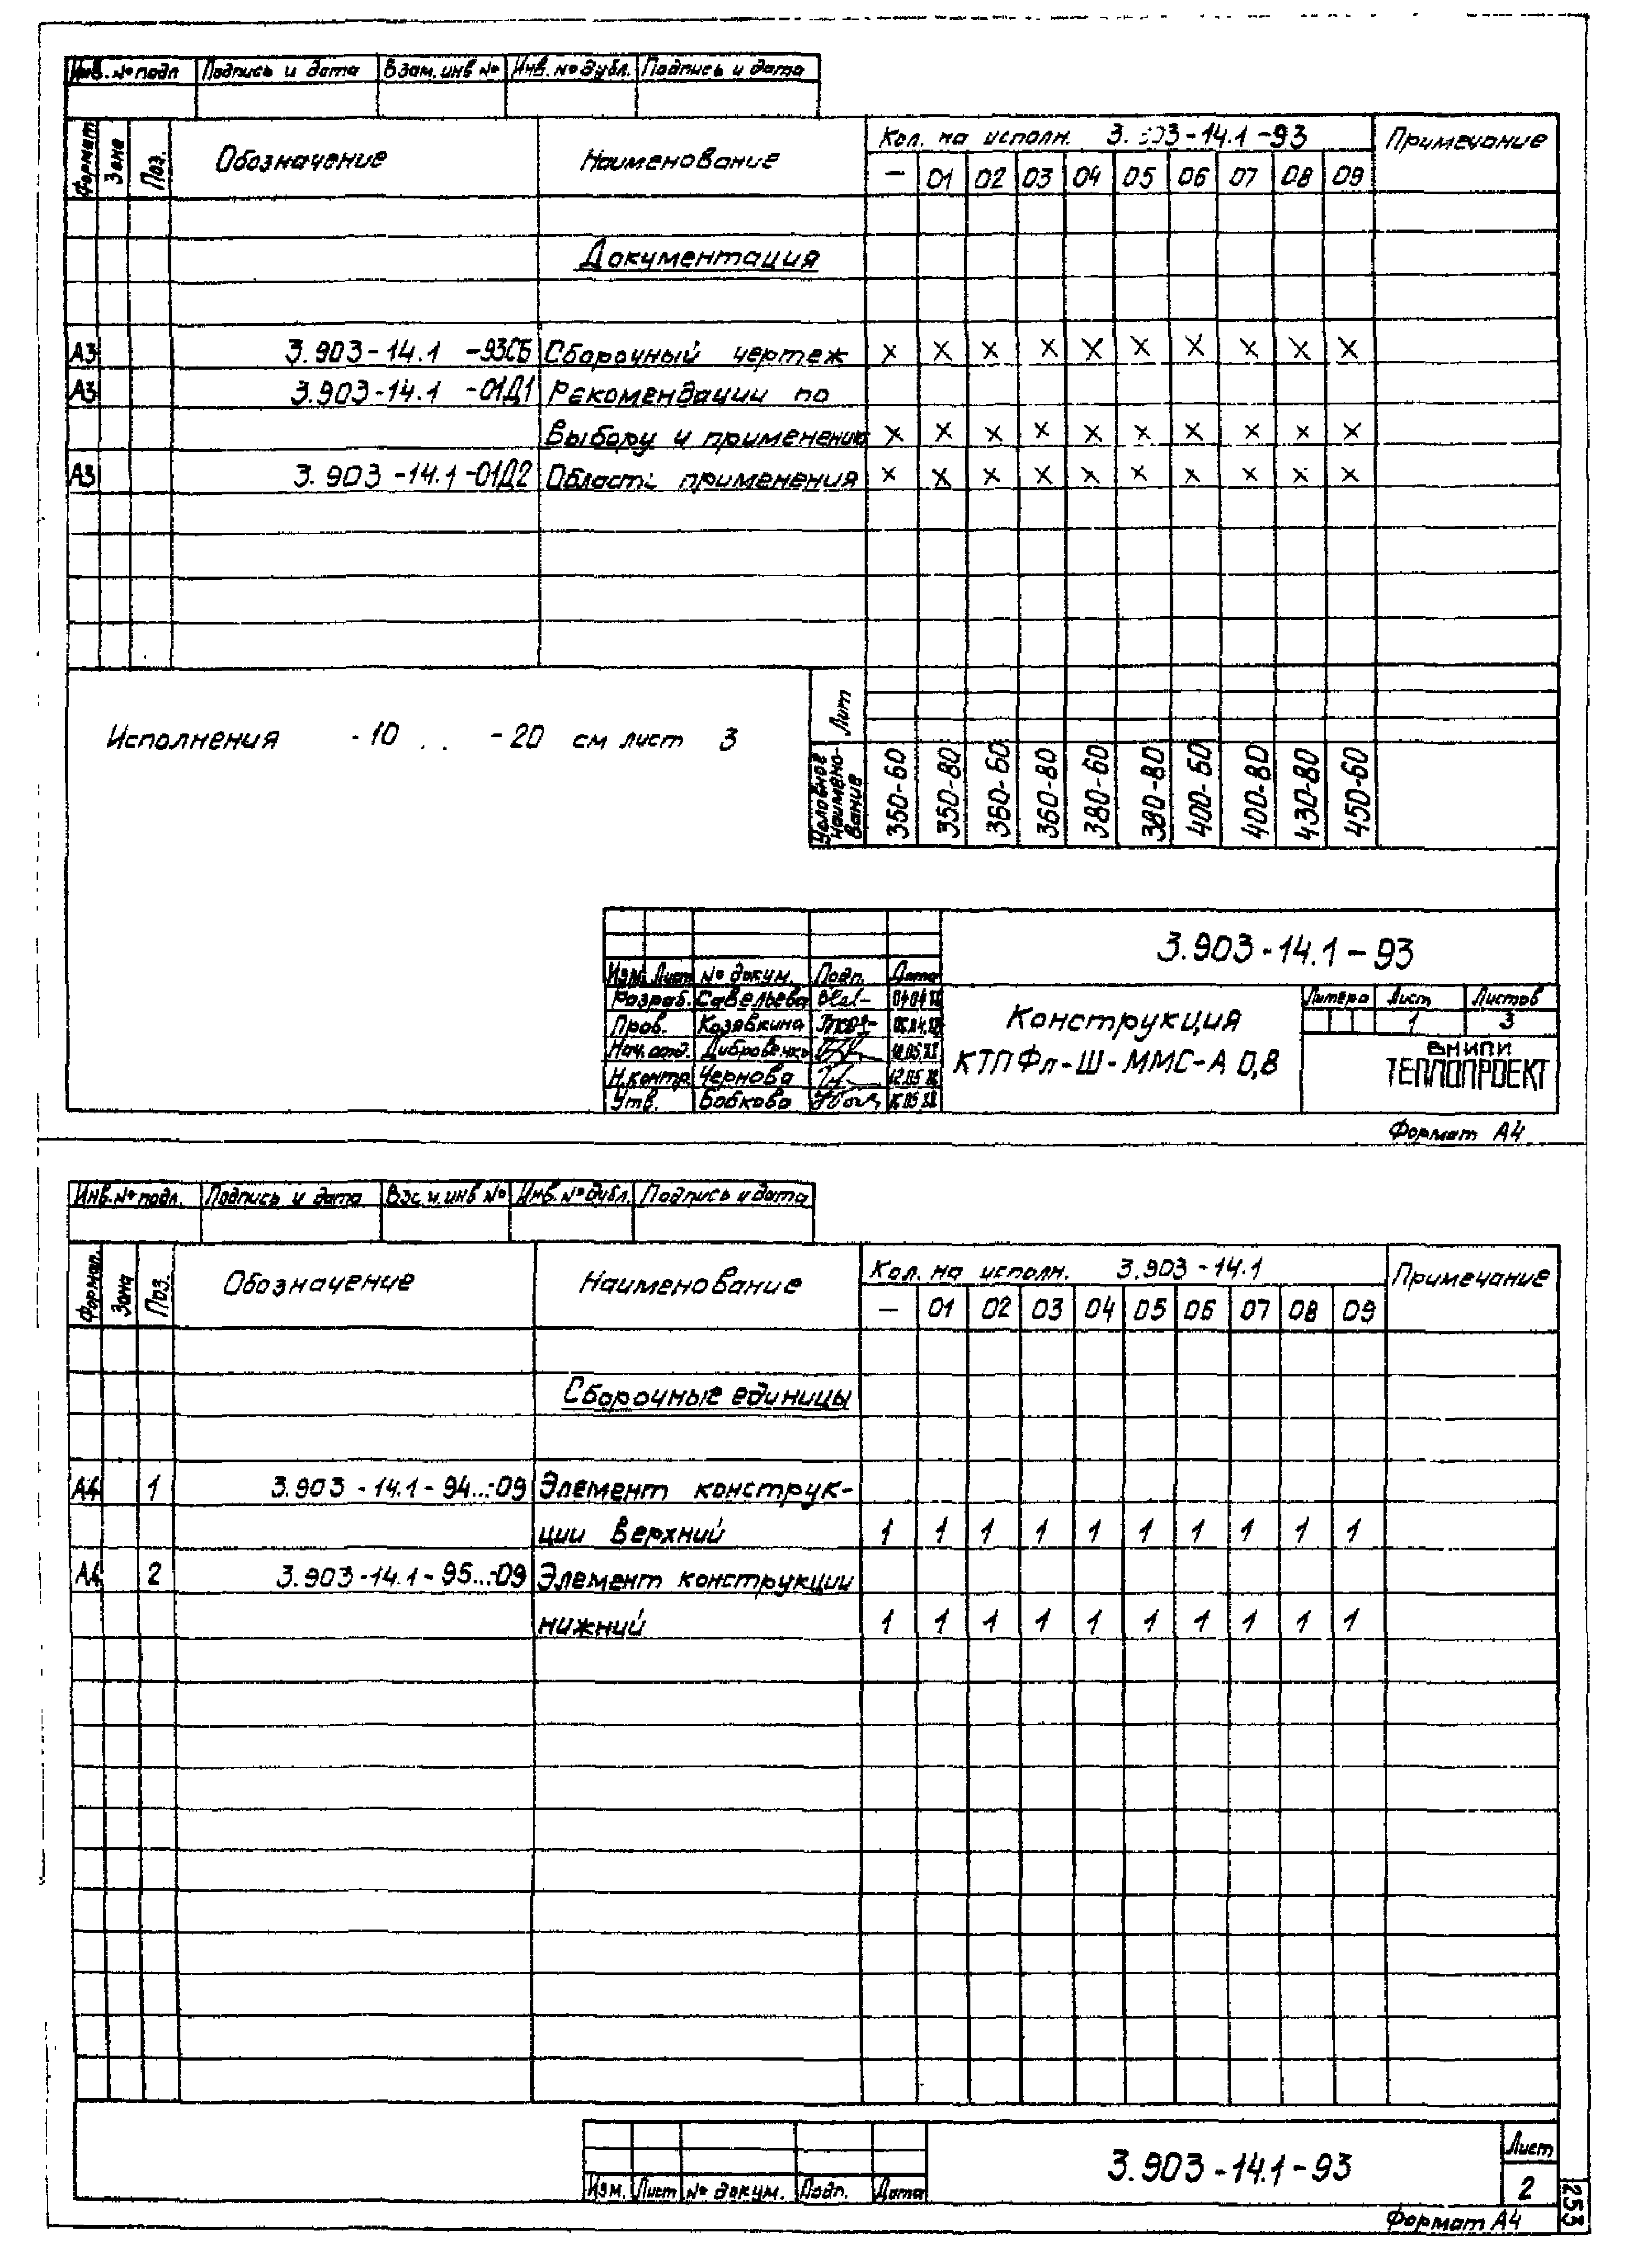 Инв. № подл Подпись и дата Взам. инв № Инв. № дубл. Подпись и дата
Формат Зона Поз. Обозначение Наименование Кол. на исполн. 3.903-14.1-93 Примечание
— 01 02 03 04 05 06 07 08 09
Документация
А3 3.903-14.1 -93СБ Сборочный чертеж × × × × × × × × × ×
А3 3.903-14.1 -01Д1 Рекомендации по
выбору и применению × × × × × × × × × ×
А3 3.903-14.1-01Д2 Области применения × × × × × × × × × ×
Лит
Исполнения -10 .. -20 см лист 3
Условное наимено-вание 350-60 350-80 360-60 360-80 380-60 380-80 400-60 400-80 430-80 450-60
3.903-14.1-93
Изм. Лист № докум. Подп. Дата
Разраб. Савельева
Пров. Козявкина
Нач. отд. Дибровенко
Н.контр Чернова
Утв. Бобкова
Конструкция
КТПФл-Ш-ММС-А 0,8
Литера Лист Листов
1 3
ВНИПИ
ТЕПЛОПРОЕКТ
Формат А4
Инв. № подл. Подпись и дата Взам. инв № Инв. № дубл. Подпись и дата
Формат. Зона Поз. Обозначение Наименование Кол. на исполн. 3.903-14.1 Примечание
— 01 02 03 04 05 06 07 08 09
Сборочные единицы
А4 1 3.903-14.1-94...-09 Элемент конструк-
ции верхний 1 1 1 1 1 1 1 1 1 1
А4 2 3.903-14.1-95...-09 Элемент конструкции
нижний 1 1 1 1 1 1 1 1 1 1
3.903-14.1-93
Лист
2
Изм. Лист № докум. Подп. Дата
Формат А4
253